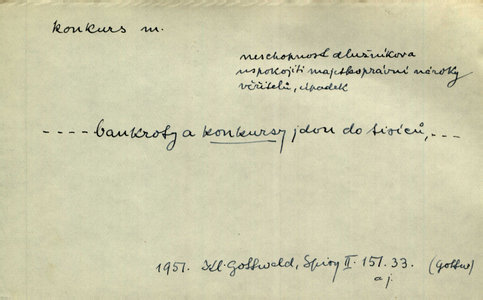 konkurs m.
neschopnost dlužníkova
uspokojiti majetkoprávní nároky
věřitelů, úpadek
---- bankroty a konkursy jdou do tisíců, ---
1951. Kl. Gottwald, Spisy II. 151. 33. (Gottw)
a j.